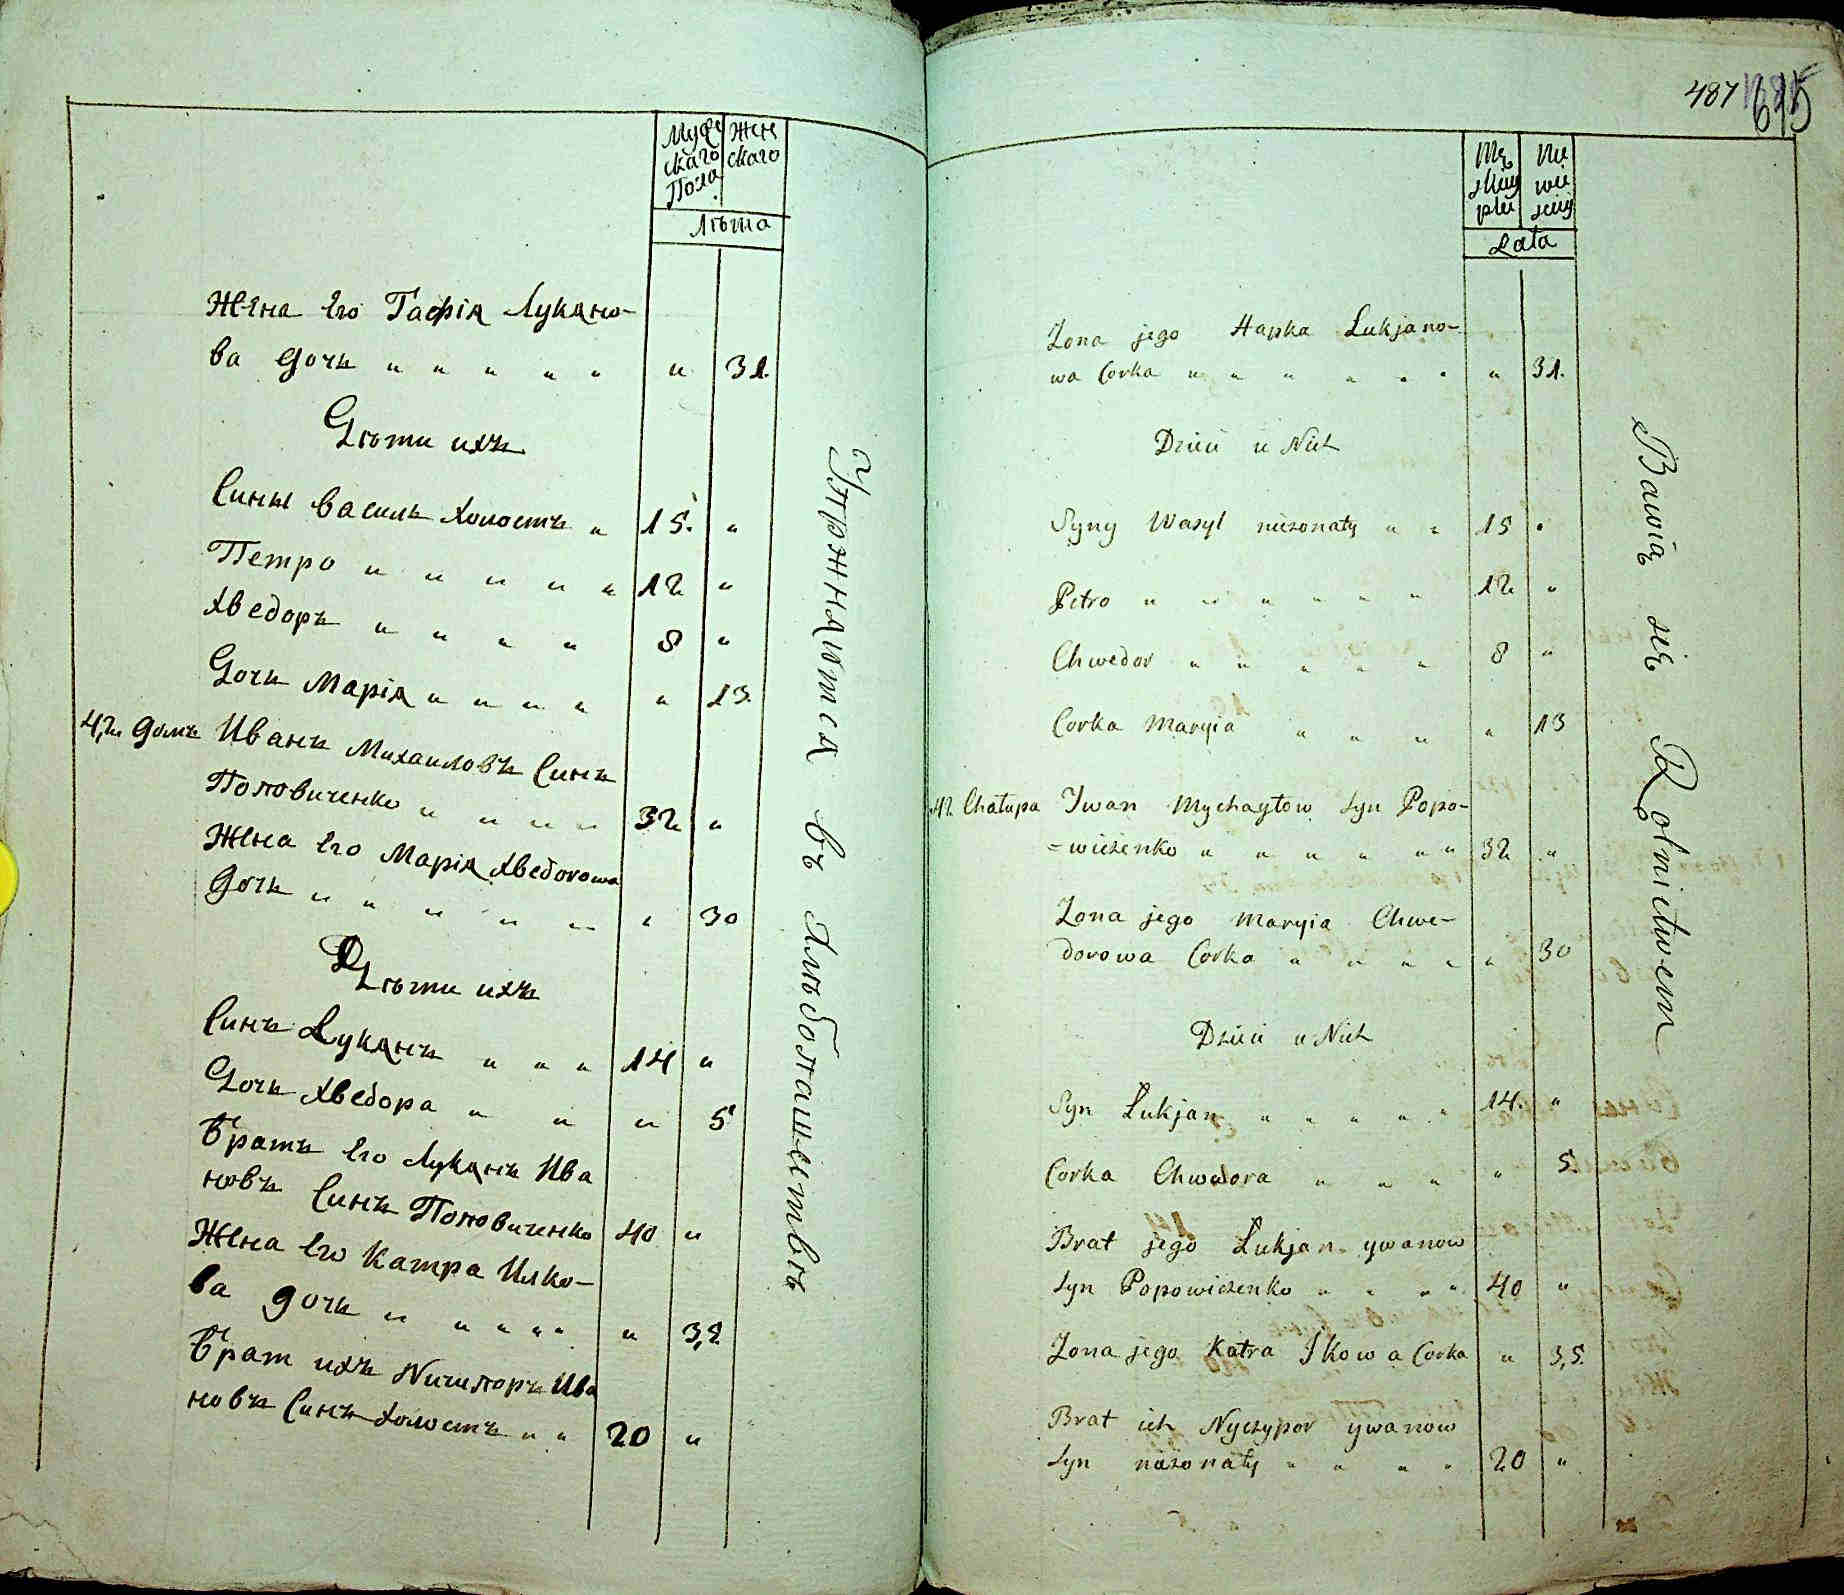 Муже
скаго
Пола
Жен
скаго
Лѣта
Жена Его Гафія Лукяно-
ва дочь " " " " " " 31.
Дѣти ихъ
Сины Василь Холостъ " 15. "
Петро " " " " " 12 "
Хведоръ " " " " 8 "
Дочь Марія " " " " " 13.
42 домъ Иванъ Михаиловъ Синъ
Поповиченко " " " " 32 "
Жена Его Марія Хведорова
дочь " " " " " " 30
Дѣти ихъ
Синъ Лукянъ " " " 14 "
Дочь Хведора " " " 5
Братъ Его Лукянъ Ива
новъ Синъ Поповиченко 40 "
Жена Его Катра Илко-
ва дочь " " " " " " 35.
Брат ихъ Ничипоръ Ива
новъ Синъ Холостъ " " 20 "
Упражняются въ Хлѣбопашествѣ
487
615
Mę
skiey
płci
Nie
wie
sciey
Lata
Zona jego Hapka Lukjano-
wa Corka " " " " " " " 31.
Dzieci ich
Syny Wasyl nieżonaty " " 15 "
Petro " " " " " " 12 "
Chwedor " " " " " 8 "
Corka Maryia " " " " 13
42 Chałupa Jwan Mychayłow Syn Popo-
=wiczenko " " " " " " 32 "
Zona jego Maryia Chwe-
dorowa Corka " " " " " 30
Dzieci ich
Syn Łukjan " " " " " 14. "
Corka Chwedora " " " " 5
Brat jego Łukjan ywanow
Syn Popowiczenko " " " " 40 "
Zona jego Katra Jkowa Corka " 35.
Brat ich Nyczypor ywanow
Syn nieżonaty " " " " 20 "
Bawią się Rolnictwem